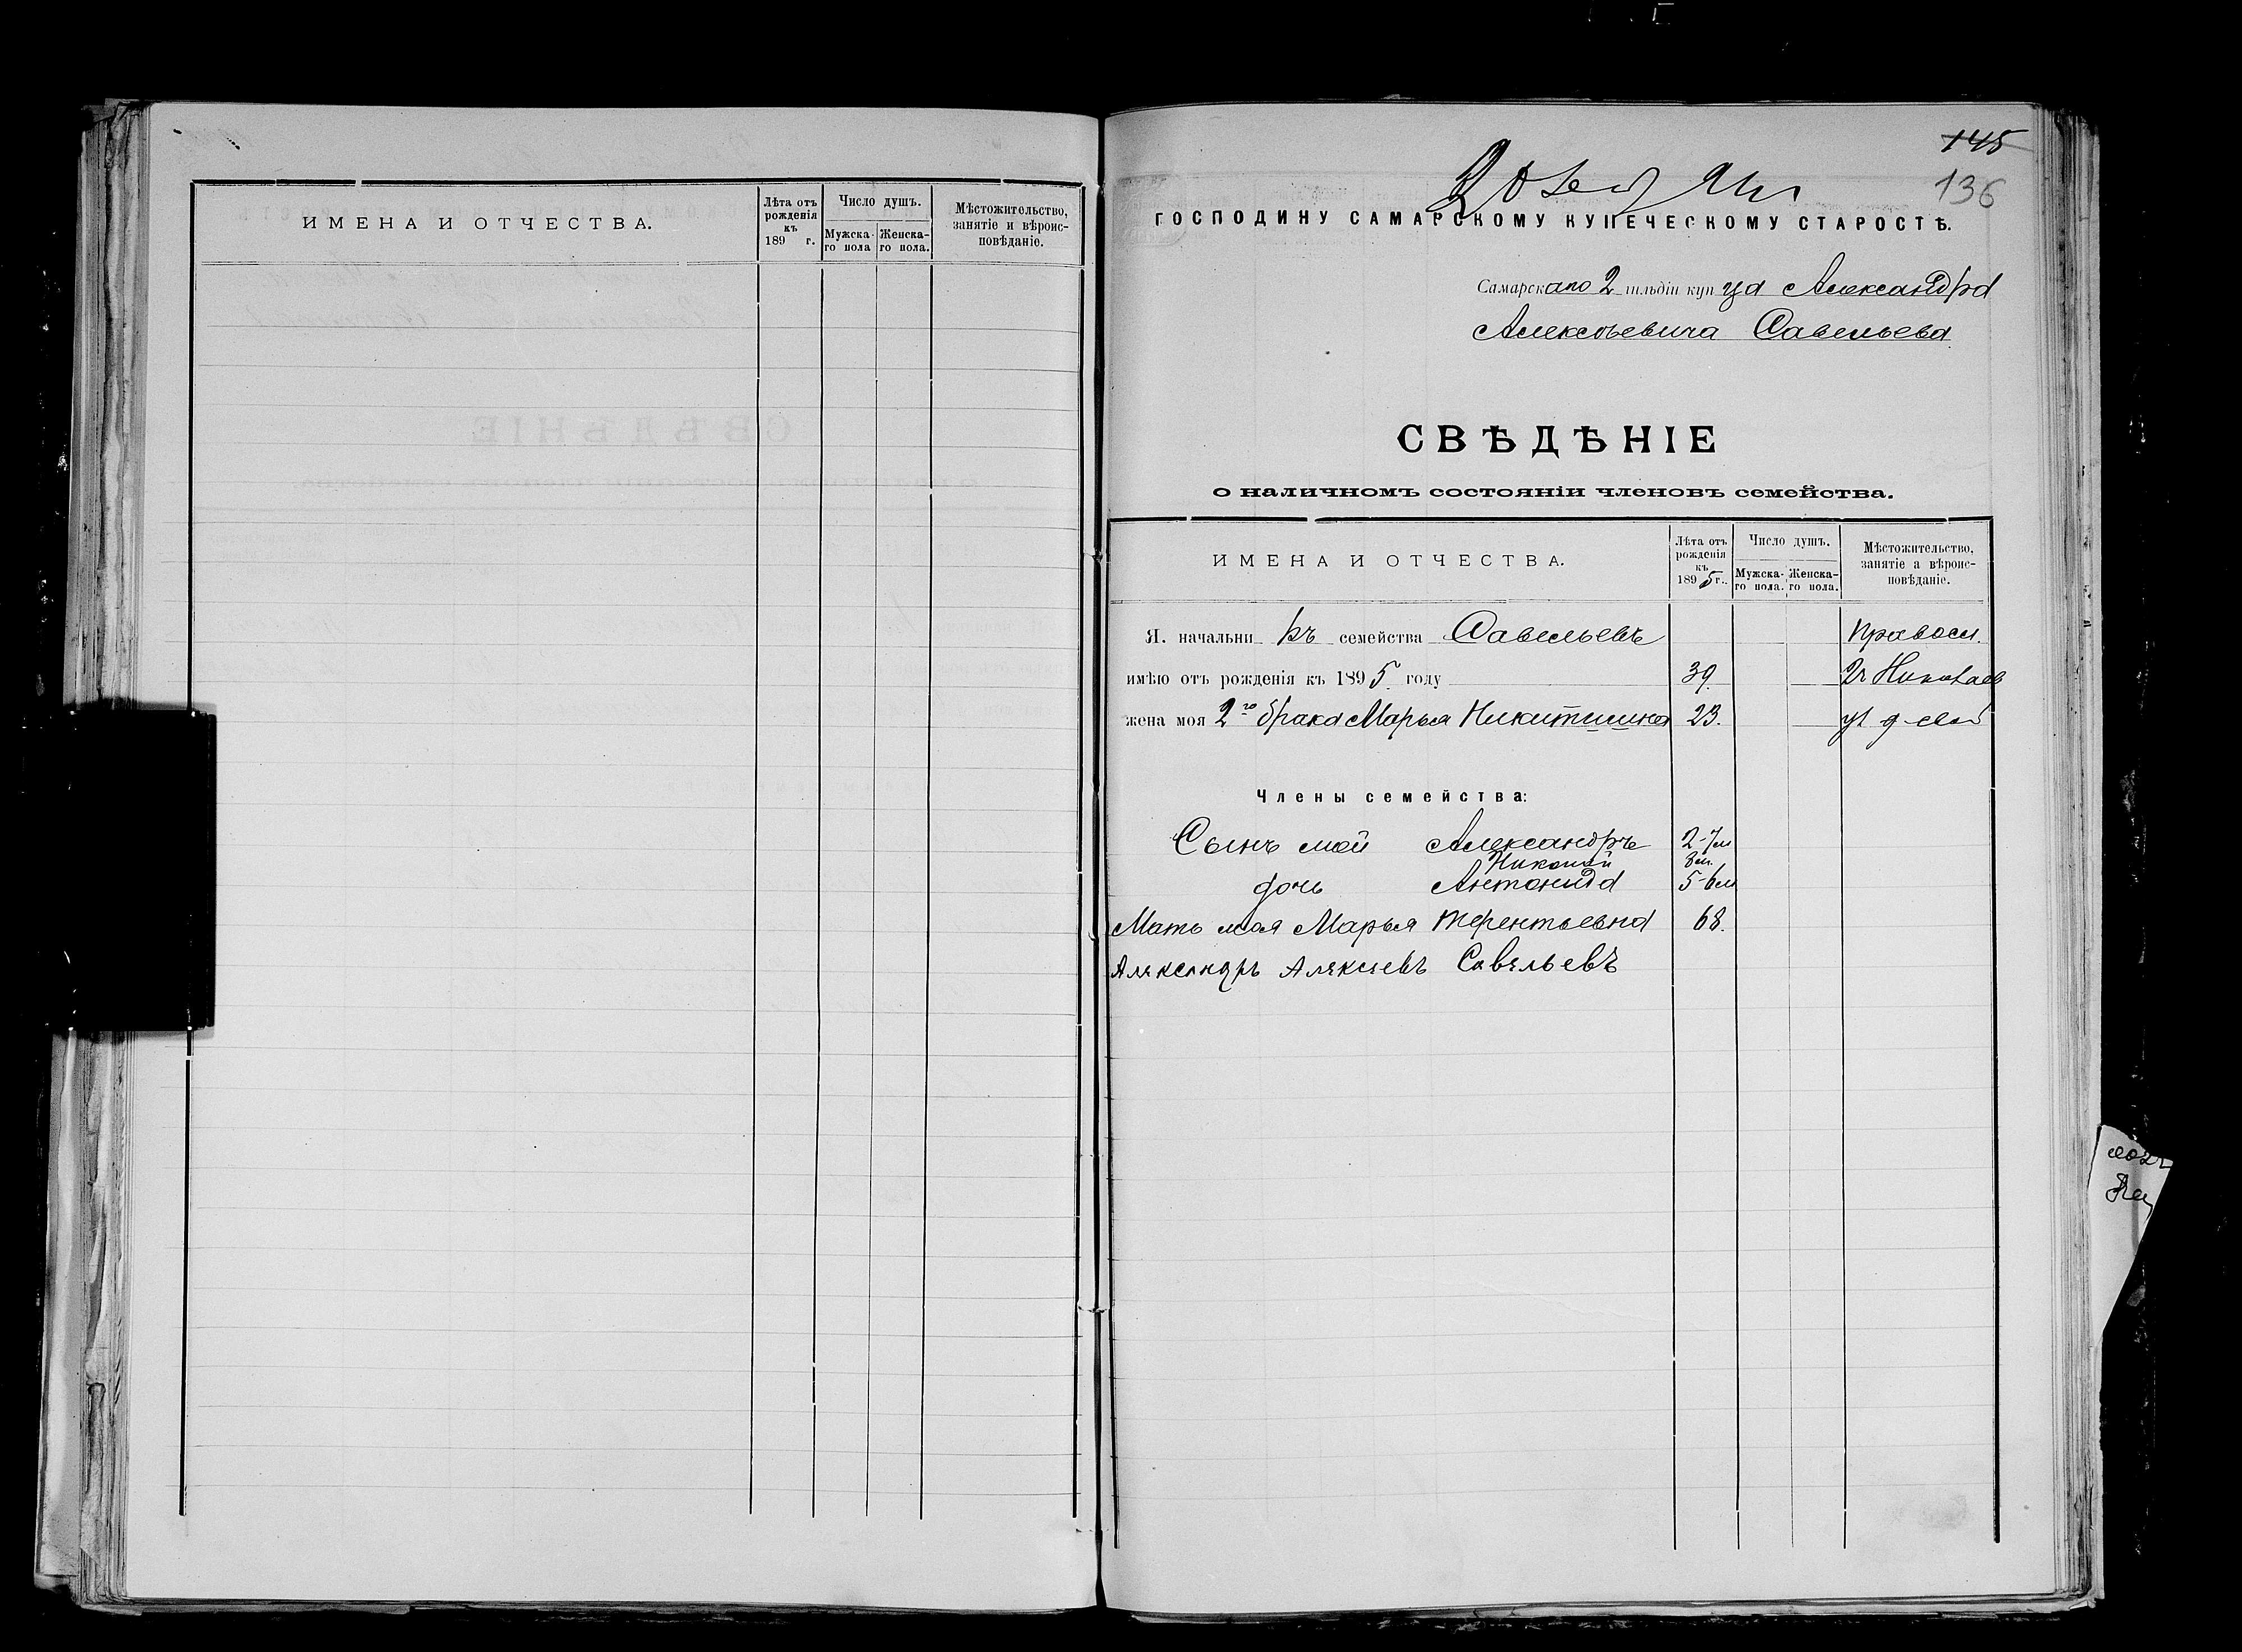 ИМЕНА И ОТЧЕСТВА.
Лѣта отъ рожденія къ 189 г.
Число душъ.
Мужска-го пола
Женска-го пола.
Мѣстожительство, занятіе и вѣроис-повѣданіе.
145
136
ГОСПОДИНУ САМАРСКОМУ КУПЕЧЕСКОМУ СТАРОСТѢ.
Самарскаго 2 гильдіи купца Александра
Алексѣевича Савельева
СВѢДѢНІЕ
о наличномъ состояніи членовъ семейства.
ИМЕНА И ОТЧЕСТВА.
Лѣта отъ рожденія къ 1895 г.
Число душъ.
Мужска-го пола.
Женска-го пола.
Мѣстожительство, занятіе а вѣроис-повѣданіе.
Я. начальникъ семейства Савельевъ Правосл.
имѣю отъ рожденія къ 1895 году 39. Николаев
жена моя 2го брака Марья Никитишна 23.
Члены семейства:
Сынъ мой Александръ 2-7м
Николай 8м.
дочь Антонида 5-6м
Мать моя Марья Терентьевна 68.
Александръ Алексѣевъ Савельевъ